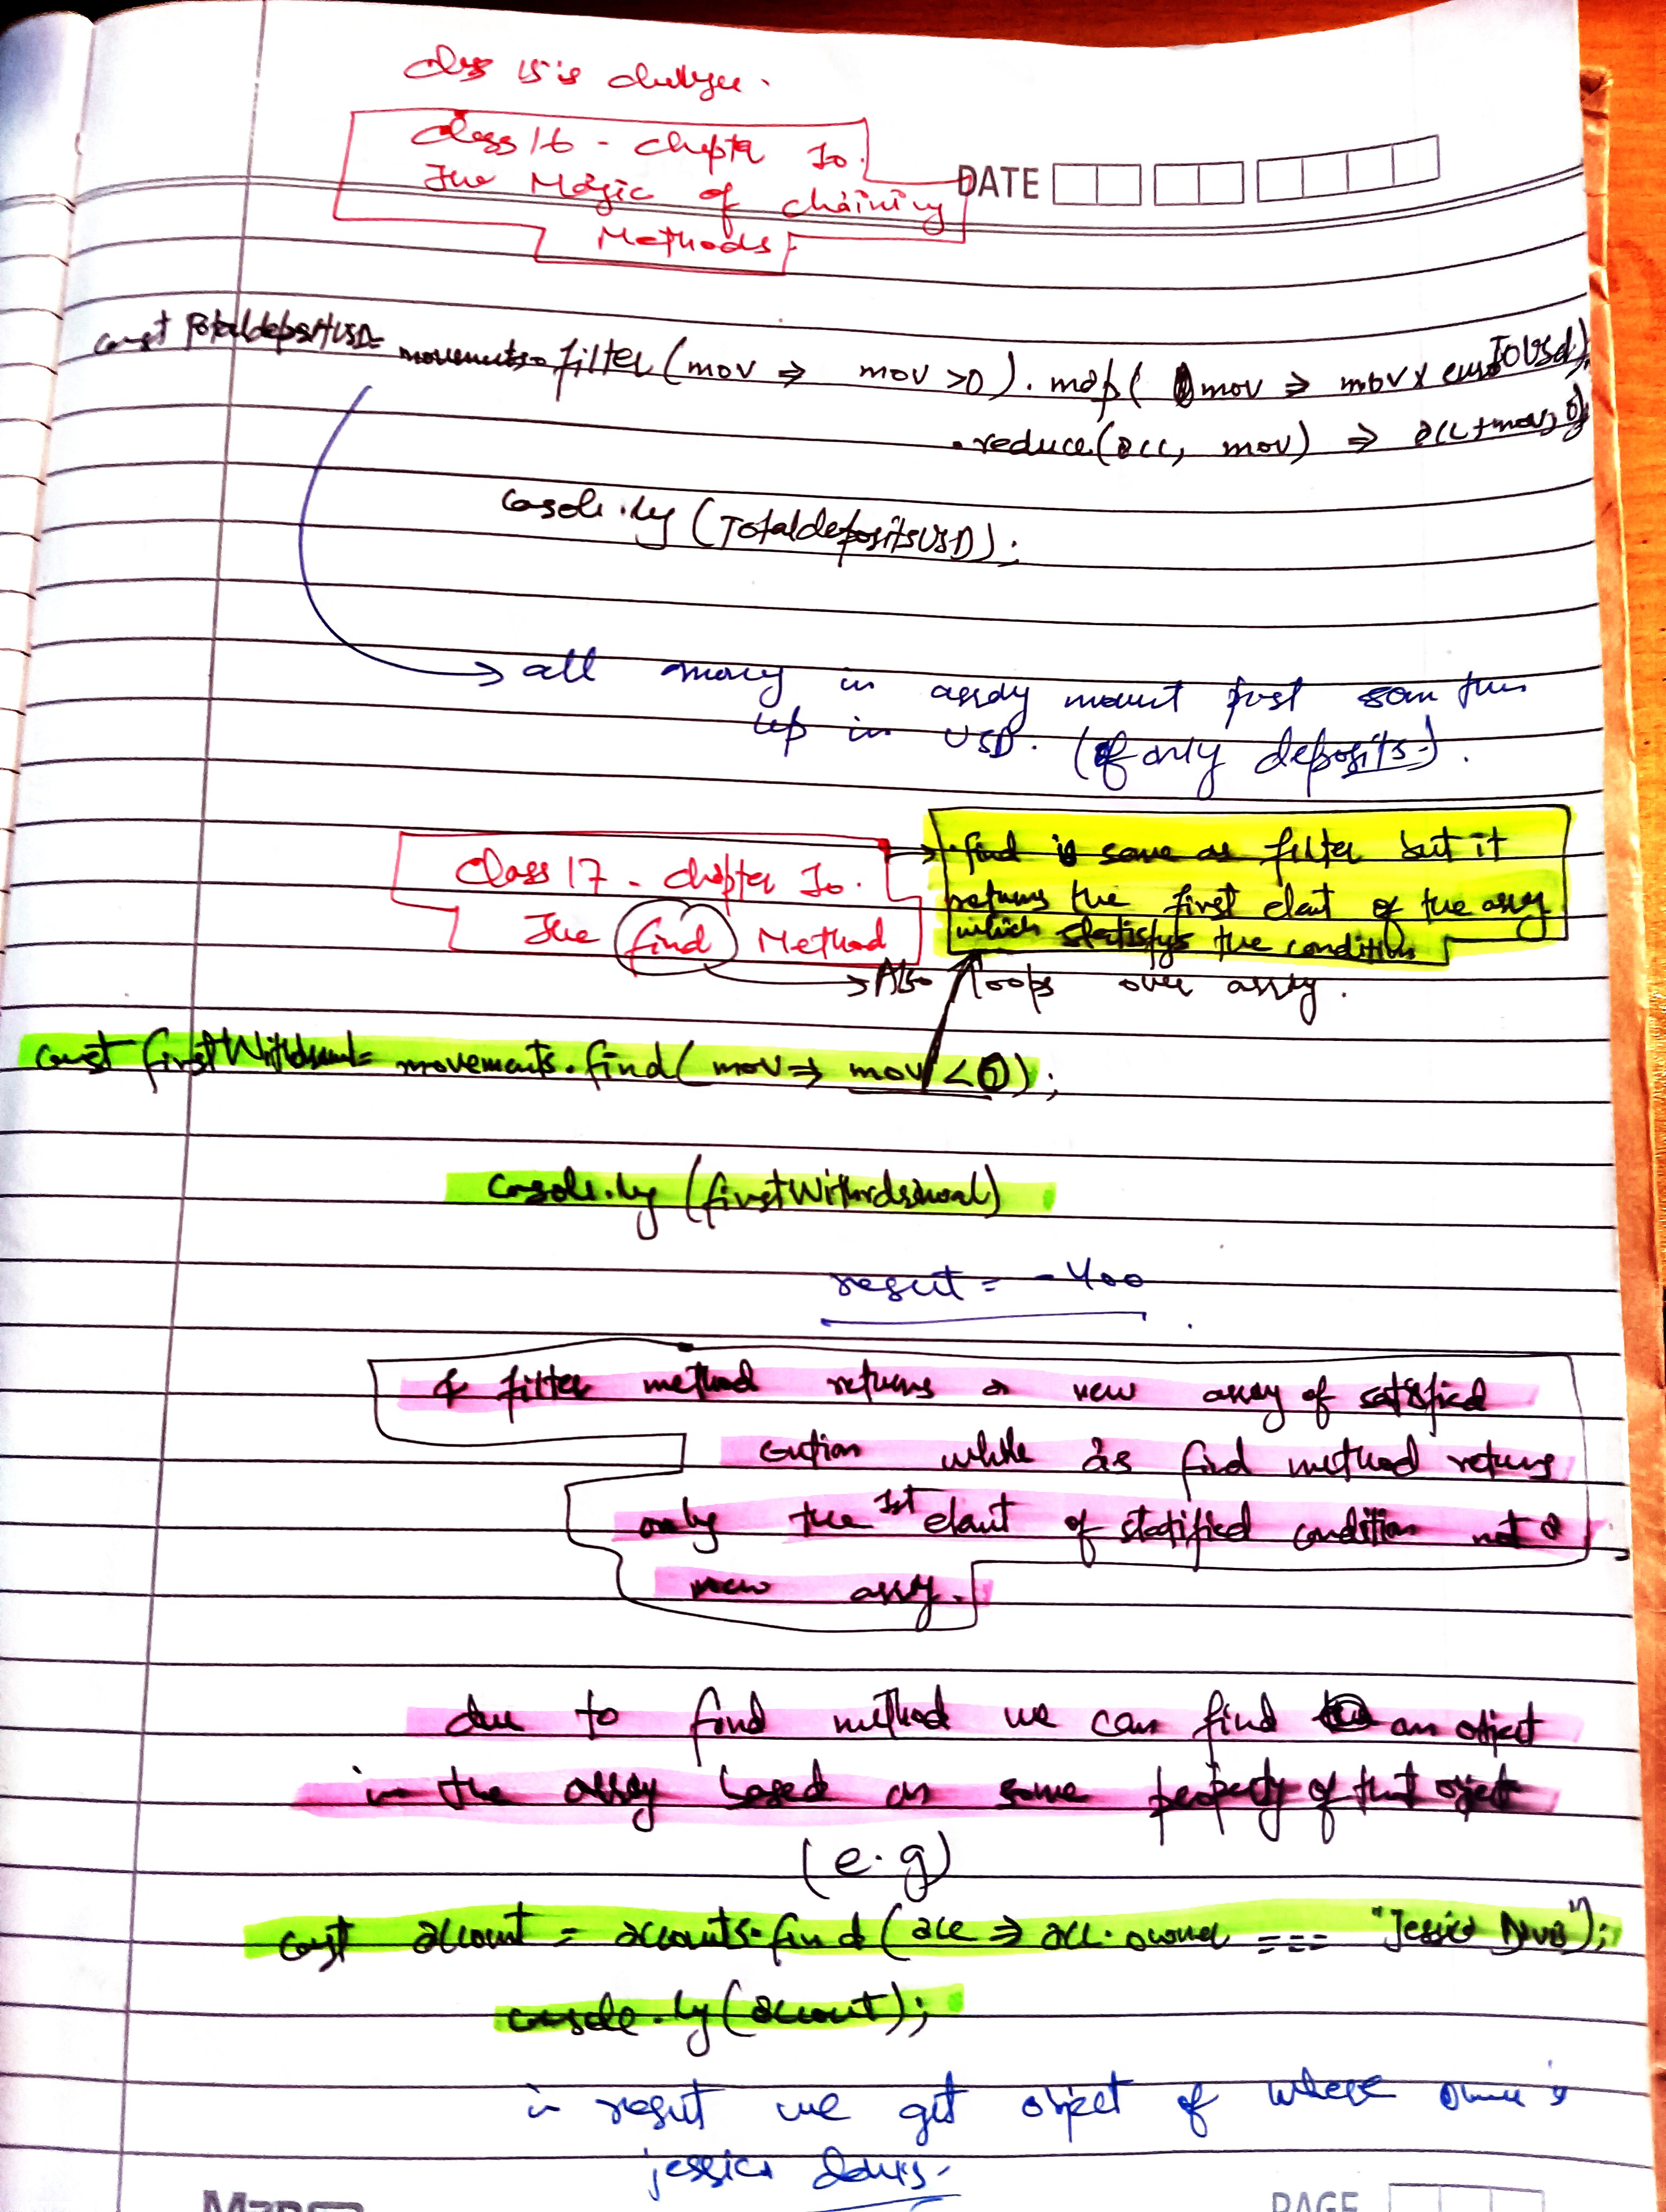 class 15 is challenge.
Class 16 - Chapter 10.
The Magic of chaining
Methods
DATE
const TotaldepositUSD = movements.filter(mov => mov >0).map( mov => mov x euroToUsd)
.reduce(acc, mov) => acc+mov, 0)
console.log (TotaldepositsUSD);
→ all money in array
up in USD. (of only deposits).
Class 17 - chapter 10.
The find Method
→ find is same as filter but it
returns the first elemt of the array
which statisfys the condition
→ Also loops over array.
const firstWithdrawal = movements.find(mov => mov <0);
console.log (firstWithdrawal)
result = -400
filter method returns a new array of satisfied
while as find method returns
only the 1st elemt of statified condition not a
new array.
due to find method we can find an object
in the array based on some property of that object
(e.g)
const account = accounts.find(acc => acc.owner === "Jessica Davis");
console.log(account);
in result we get object of where owner is
jessica davis.
PAGE